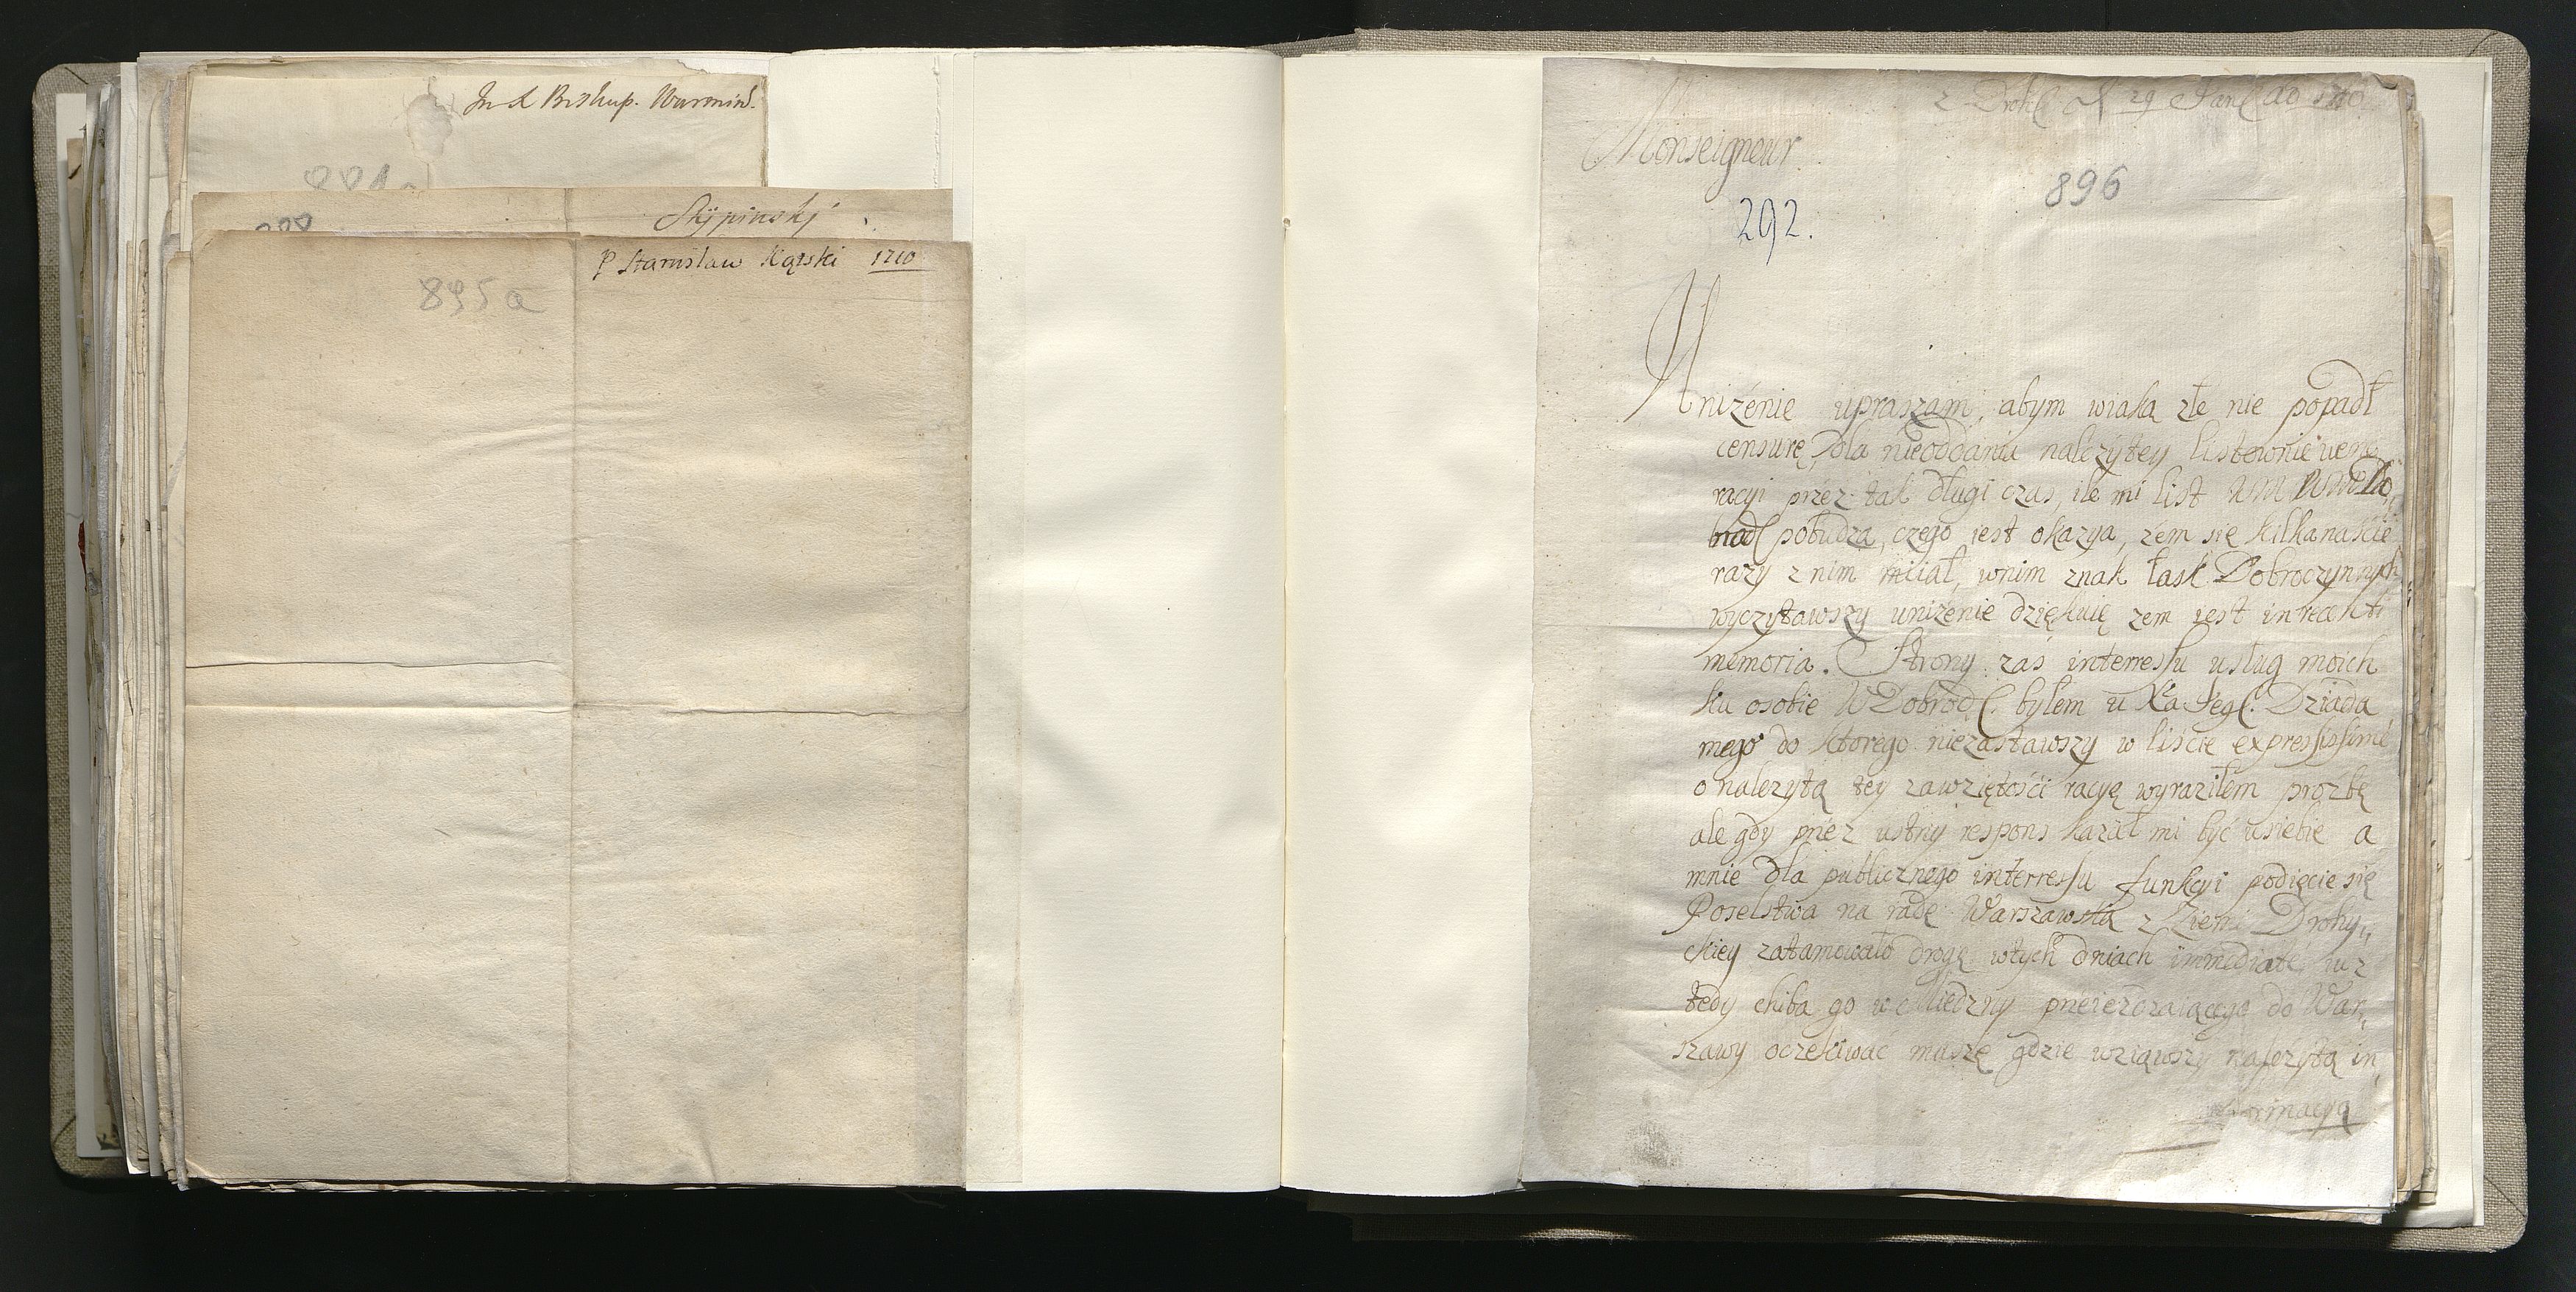 Biskup. Warmiń.
Skÿpinskj
P Stanisław Kątski 1710
895a
29 1710
Monseigneur.
896
292.
Uniżenie upraszam, abym wiaką złe nie popadł
censurę, dla nieoddania należytey listownie vene
racyi przez tak długi czas, ile mi list WM WMDo
brod pobudza, czego iest okazya, żem się kilkanaście
razy z nim miiał, wnim znak łask Dobroczynnych
wyczytawszy uniżenie dziękuię zem iest in recenti
memoria. Strony zaś interressu usług moich
ku osobie WDobrod. byłem u Xa Dziada
mego do ktorego niezastawszy w liście expressissimè
o nalezytą tey zawziętości racyę wyraziłem prożbę
ale gdy przez ustny respons kazał mi być usiebie a
mnie dla publicznego interressu funkcyi podięcie się
Poselstwa na radę Warszawską z Ziemi Drohy,,
ckiey zatamowało drogę wtych dniach immediatè iuz
tedy chiba go w Miedzny przeieżdzaiącego do War,
szawy oczekiwać muszę gdzie wziąwszy należytą in,
formacyą